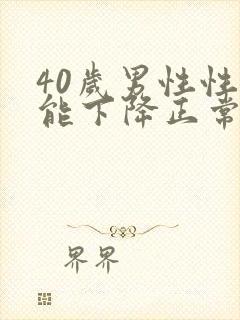 40岁男性性
能下降正常
界界